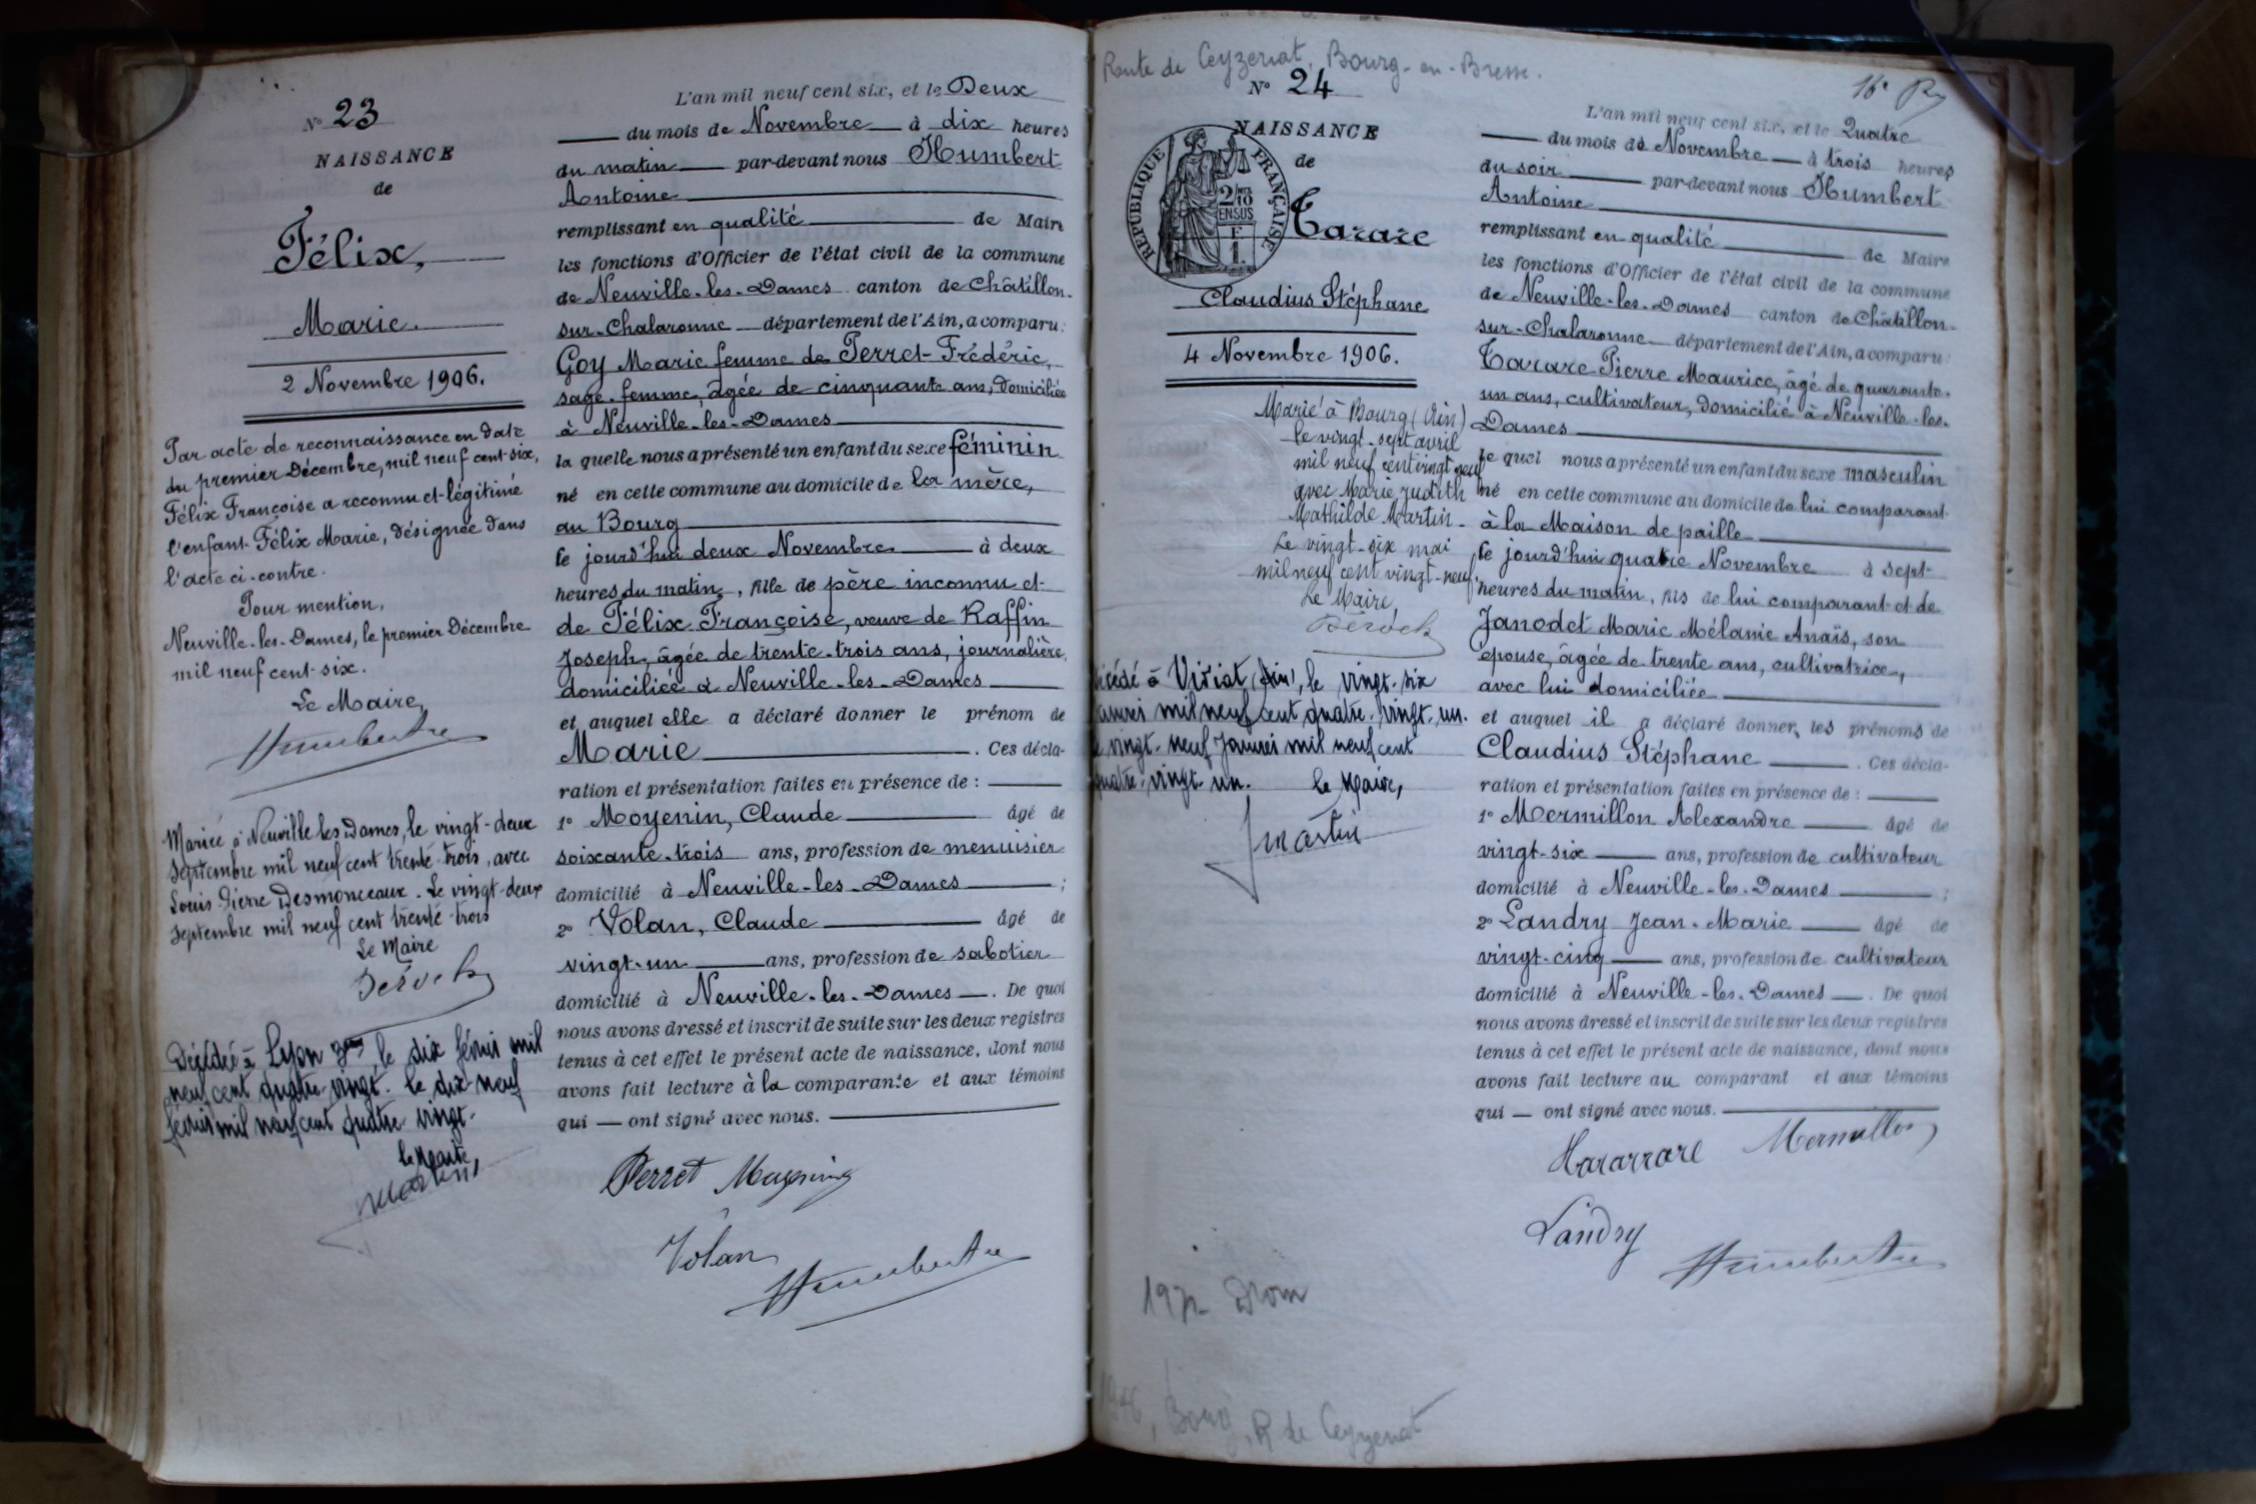 N° 23
NAISSANCE
de
Félix,
Marie.
2 Novembre 1906.
Par acte de reconnaissance en date
du premier Décembre, mil neuf cent-six,
Félix Françoise a reconnu et légitimé
l'enfant Félix Marie, désignée dans
l'acte ci-contre.
Pour mention,
Neuville-les-Dames, le premier Décembre
mil neuf cent-six.
Le Maire,
Mariée à Neuville les Dames, le vingt-deux
Septembre mil neuf cent trente-trois, avec
Louis Pierre Desmonceaux. Le vingt-deux
Septembre mil neuf cent trente-trois
Le Maire
Décédée à Lyon 3me, le dix février mil
neuf cent quatre-vingt. le dix-neuf
février mil neuf cent quatre-vingt.
le Maire,
Martin
L'an mil neuf cent six, et le Deux
du mois de Novembre à dix heures
du matin par-devant nous Humbert
Antoine
remplissant en qualité de Maire
les fonctions d'Officier de l'état civil de la commune
de Neuville-les-Dames canton de Châtillon-
sur-Chalaronne département de l'Ain, a comparu:
Goy Marie femme de Perret Frédéric,
sage-femme, âgée de cinquante ans, domiciliée
à Neuville-les-Dames
la quelle nous a présenté un enfant du sexe féminin
né en cette commune au domicile de la mère,
au Bourg
le jourd'hui deux Novembre à deux
heures du matin, fille de père inconnu et
de Félix Françoise, veuve de Raffin
Joseph, âgée de trente-trois ans, journalière,
domiciliée à Neuville-les-Dames
et auquel elle a déclaré donner le prénom de
Marie . Ces décla-
ration et présentation faites en présence de :
1° Moyenin, Claude âgé de
soixante-trois ans, profession de menuisier
domicilié à Neuville-les-Dames ;
2° Volan, Claude âgé de
vingt-un ans, profession de sabotier
domicilié à Neuville-les-Dames . De quoi
nous avons dressé et inscrit de suite sur les deux registres
tenus à cet effet le présent acte de naissance, dont nous
avons fait lecture à la comparante et aux témoins
qui ont signé avec nous.
Perret
Volan
Route de Ceyzeriat, Bourg-en-Bresse.
N° 24
NAISSANCE
de
RÉPUBLIQUE FRANÇAISE
2/10
EN SUS
F
1.
Tarare
Claudius Stéphane
4 Novembre 1906.
Marié à Bourg (Ain)
le vingt-sept avril
mil neuf cent vingt neuf
avec Marie Judith
Mathilde Martin.
Le vingt-six mai
mil neuf cent vingt-neuf.
Le Maire,
Décédé à Viriat (Ain), le vingt-six
janvier mil neuf cent quatre-vingt-un.
le vingt-neuf Janvier mil neuf cent
quatre-vingt-un. le Maire,
Martin
Bourg, R de Ceyzeriat
L'an mil neuf cent six, et le Quatre
du mois de Novembre à trois heures
du soir par-devant nous Humbert
Antoine
remplissant en qualité de Maire
les fonctions d'Officier de l'état civil de la commune
de Neuville-les-Dames canton de Châtillon-
sur-Chalaronne département de l'Ain, a comparu:
Tarare Pierre Maurice, âgé de quarante-
un ans, cultivateur, domicilié à Neuville-les-
Dames
le quel nous a présenté un enfant du sexe masculin
né en cette commune au domicile de lui comparant
à la Maison de paille
le jourd'hui quatre Novembre à sept
heures du matin, fils de lui comparant et de
Janodet Marie Mélanie Anaïs, son
épouse, âgée de trente ans, cultivatrice,
avec lui domiciliée
et auquel il a déclaré donner les prénoms de
Claudius Stéphane . Ces décla-
ration et présentation faites en présence de :
1° Mermillon Alexandre âgé de
vingt-six ans, profession de cultivateur
domicilié à Neuville-les-Dames ;
2° Landry Jean-Marie âgé de
vingt-cinq ans, profession de cultivateur
domicilié à Neuville-les-Dames . De quoi
nous avons dressé et inscrit de suite sur les deux registres
tenus à cet effet le présent acte de naissance, dont nous
avons fait lecture au comparant et aux témoins
qui ont signé avec nous.
Mermillon
Landry